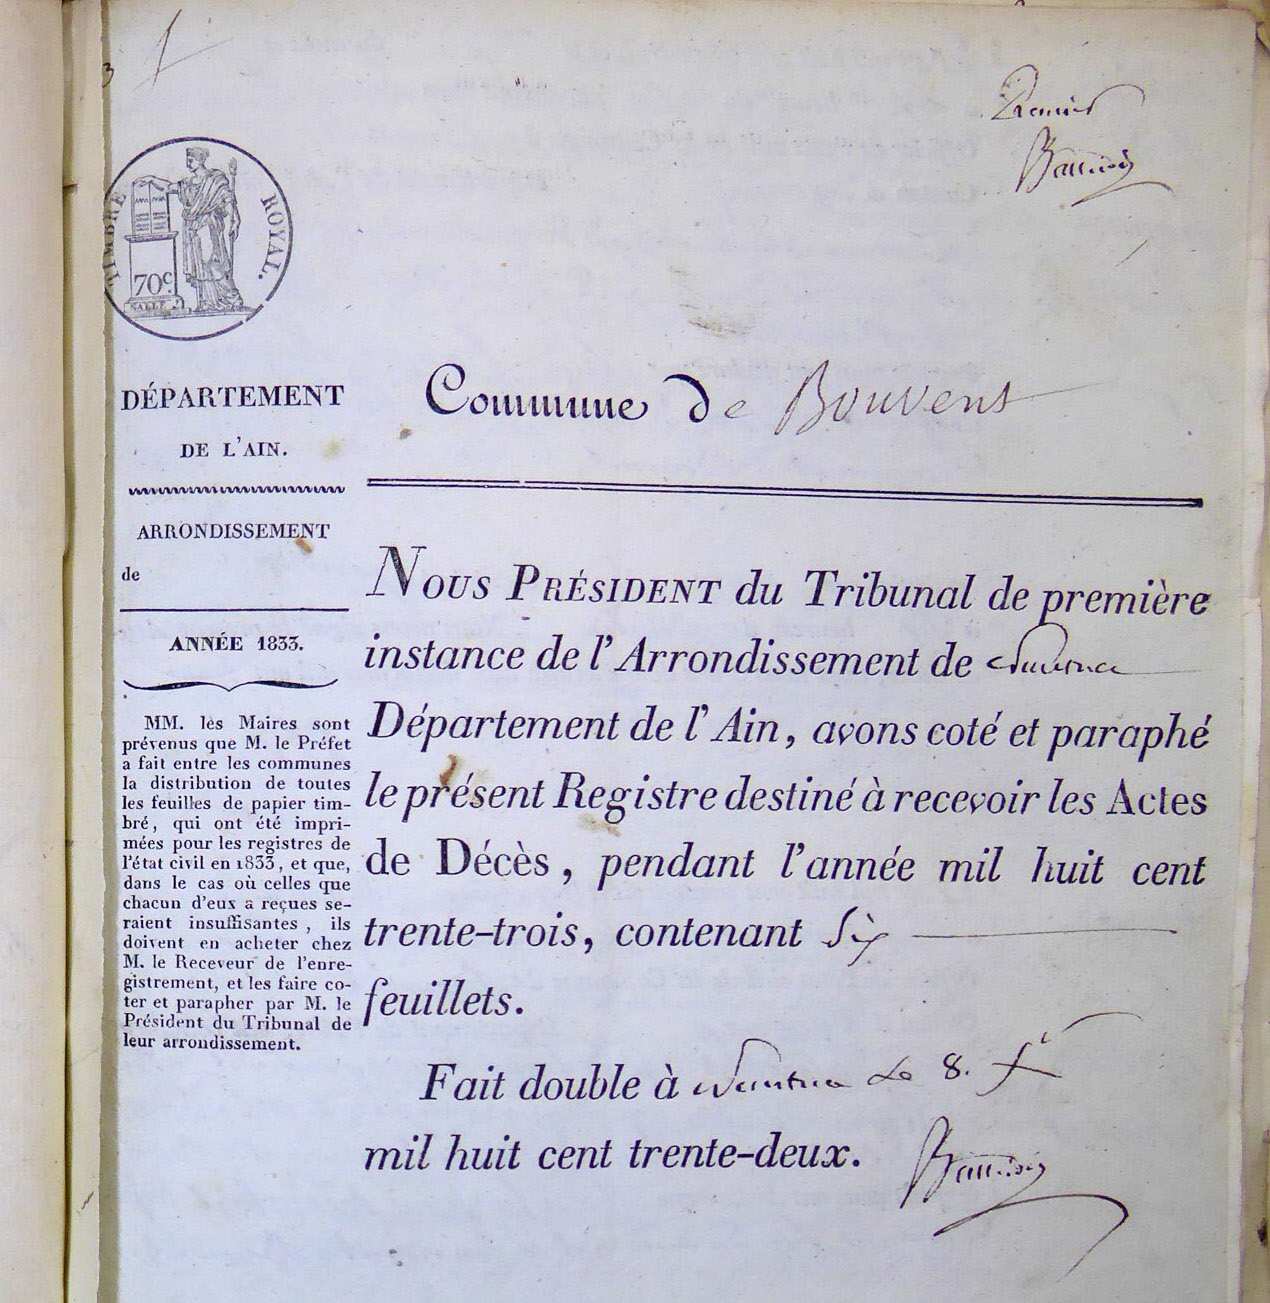 Premier
TIMBRE ROYAL.
70c.
Commune de Bouvent
DÉPARTEMENT
DE L'AIN.
ARRONDISSEMENT
de
ANNÉE 1833.
MM. les Maires sont
prévenus que M. le Préfet
a fait entre les communes
la distribution de toutes
les feuilles de papier tim-
bré, qui ont été impri-
mées pour les registres de
l'état civil en 1833, et que,
dans le cas où celles que
chacun d'eux a reçues se-
raient insuffisantes, ils
doivent en acheter chez
M. le Receveur de l'enre-
gistrement, et les faire co-
ter et parapher par M. le
Président du Tribunal de
leur arrondissement.
NOUS PRÉSIDENT du Tribunal de première
instance de l'Arrondissement de Nantua
Département de l'Ain, avons coté et paraphé
le présent Registre destiné à recevoir les Actes
de Décès, pendant l'année mil huit cent
trente-trois, contenant Six
feuillets.
Fait double à Nantua le 8.
mil huit cent trente-deux.